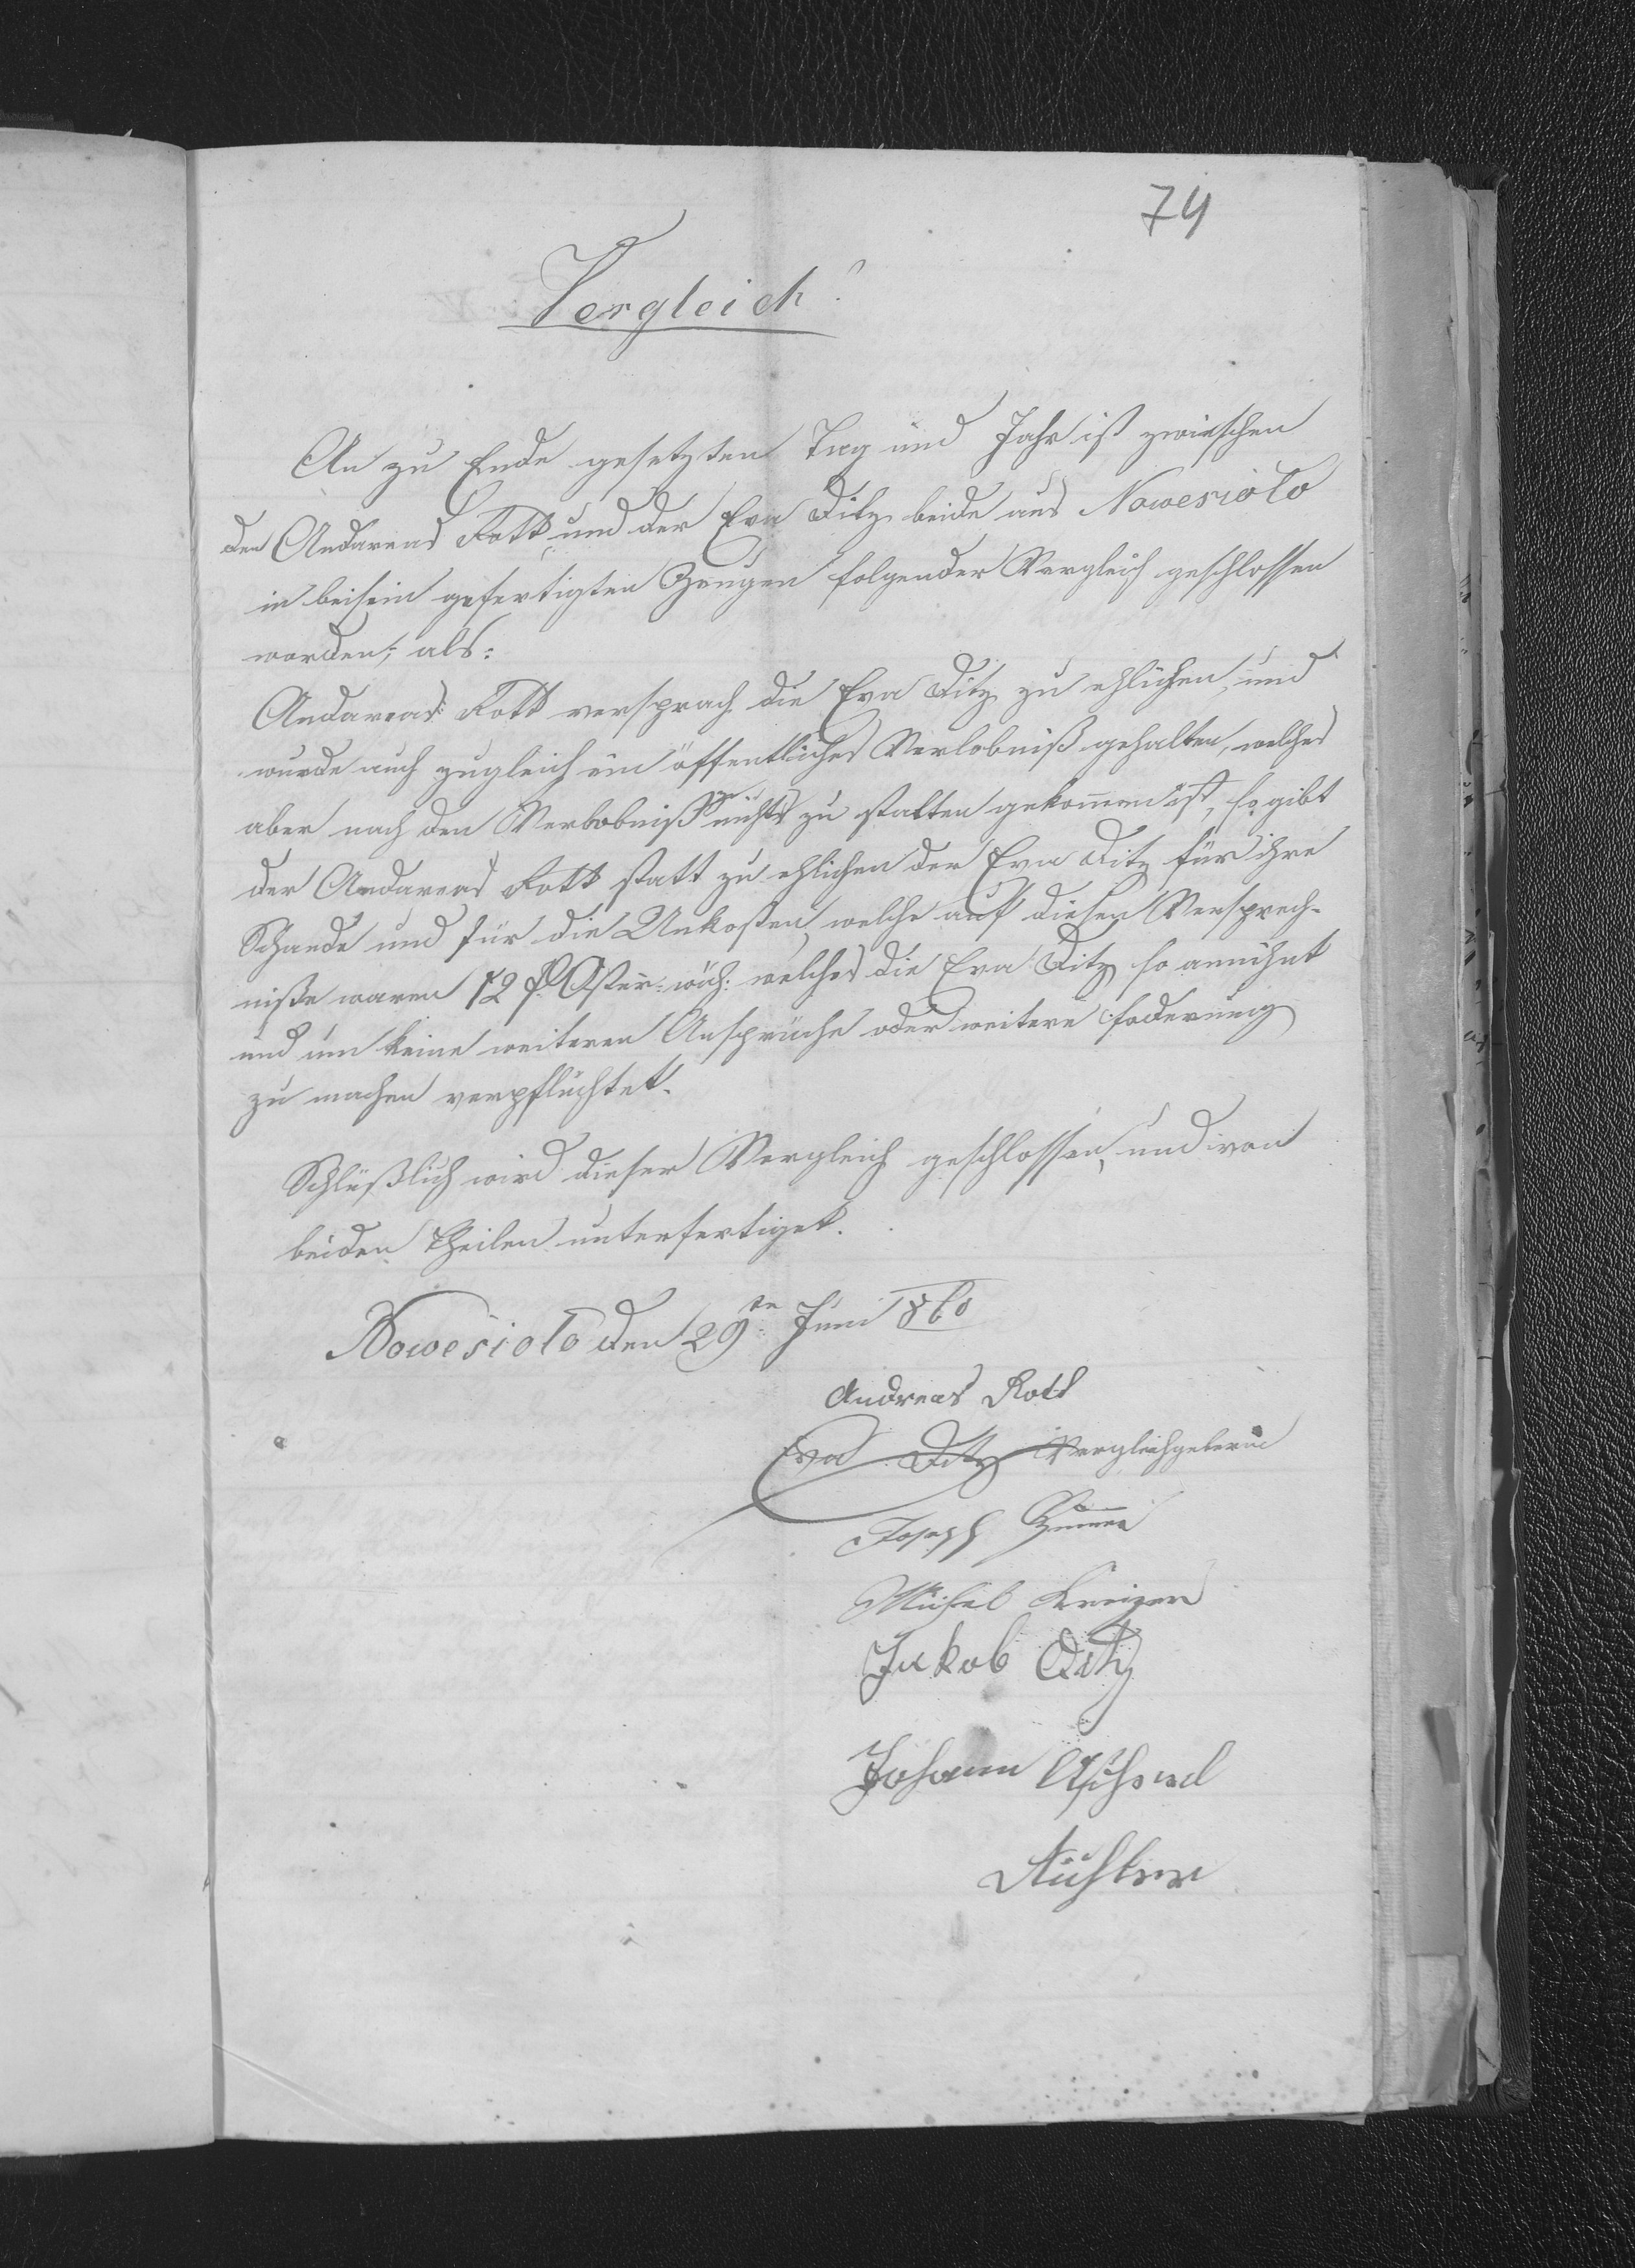 74
Vergleich
An zu Ende gesetzten Tag und Jahr ist zwieschen
den Andareas Rott und der Eva Ditz beide aus Nowesioło
in beisein gefertigten Zeugen folgender Vergleich geschlossen
worden, als:
Andareas Rott versprach die Eva Ditz zu ehlichen, und
wurde auch zugleich ein öffentliches Verlobniß gehalten, welches
aber nach den Verlobniß nichts zu statten gekommen ist, so gibt
der Andareas Rott statt zu ehlichen der Eva Ditz für ihre
Schande und für die Unkosten welche auf diesen Versprech-
niße waren 12 f Öster: wäh: welches die Eva Ditz so annihmt
und um keine weiteren Ansprüche oder weitere foderung
zu machen verpflichtet.
Schlüßlich wird dieser Vergleich geschlossen, und von
beiden Theilen unterfertiget.
Nowesioło den 29ten Juni 860
Andreas Rott
Eva Ditz Vergleichgeberin
Joseph
Michel
Jakob Ditz
Johann
Richter